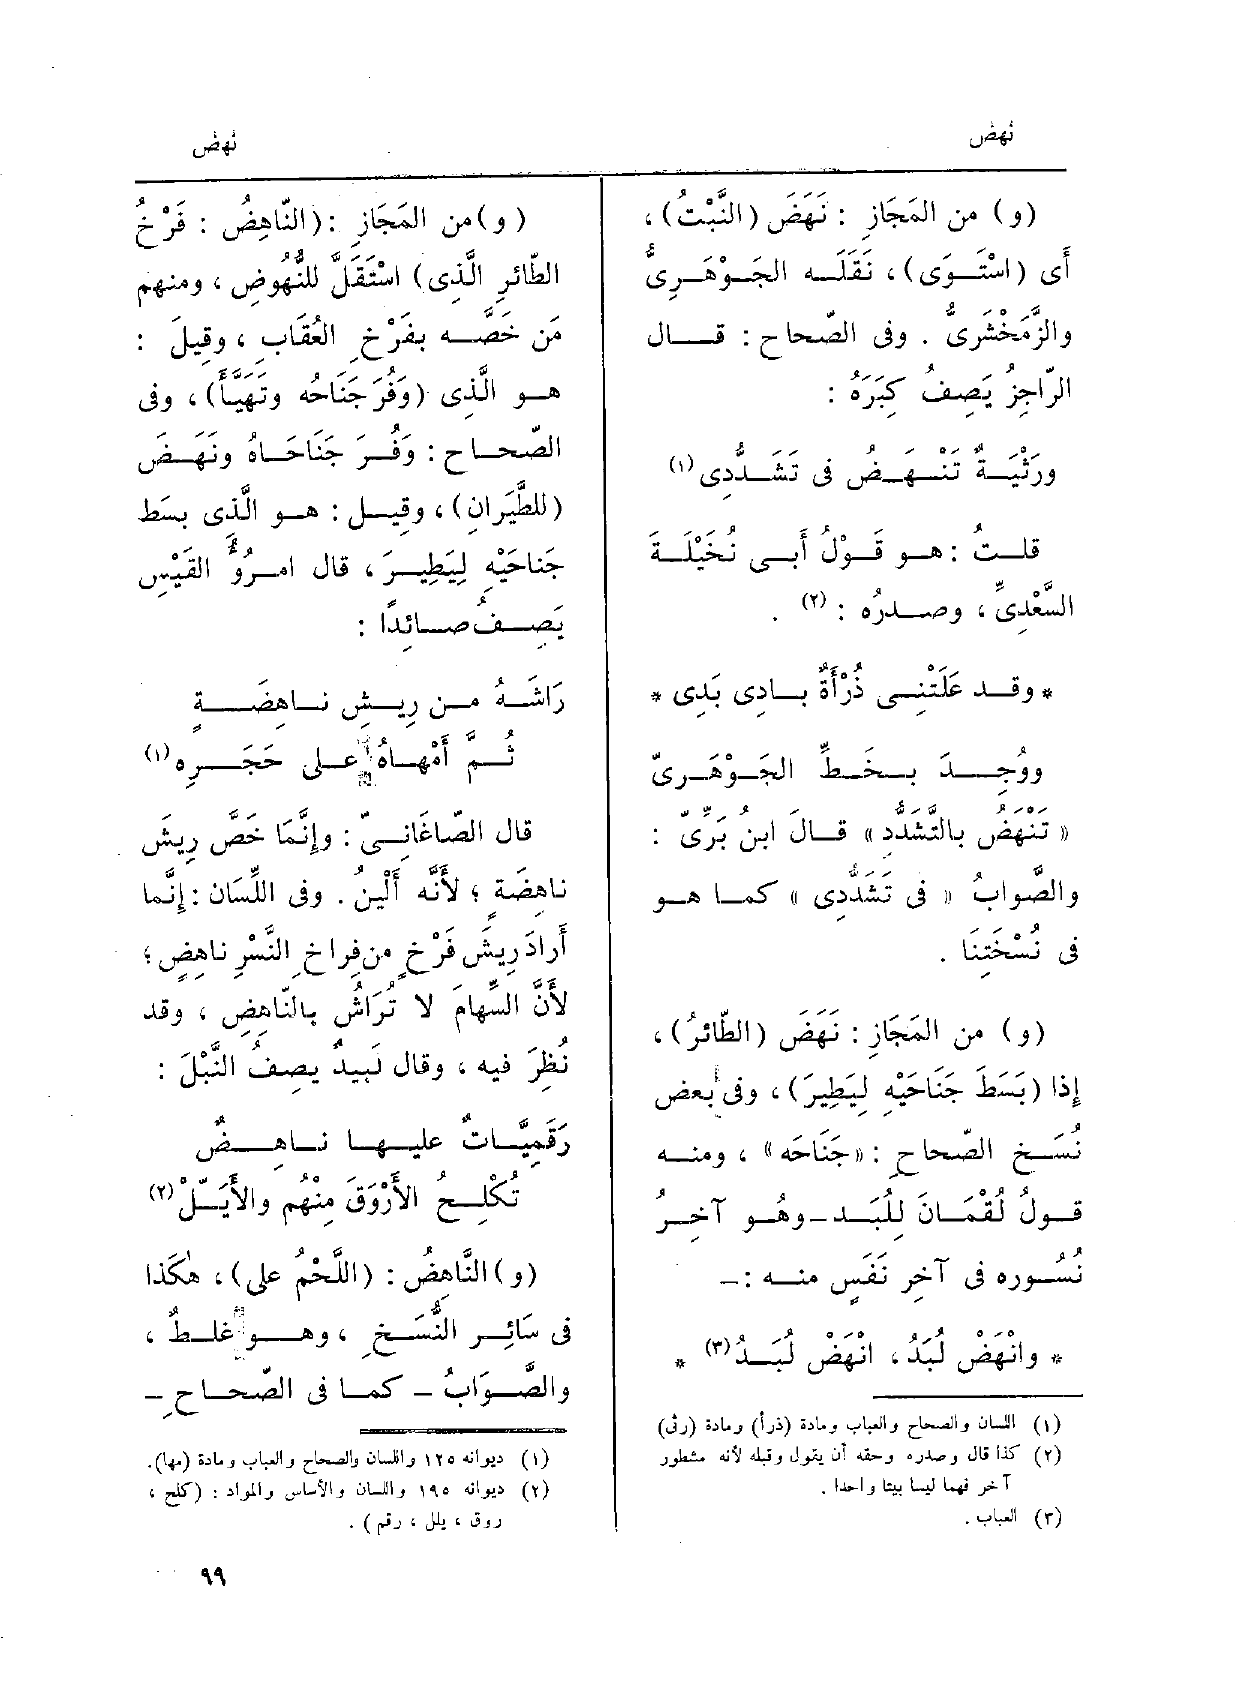 نهض
نهض
(و) من المَجَازِ : نَهَضَ (النَّبْتُ)،
أى (اسْتَوَى)، نَقَلَه الجَوْهَرِىُّ
والزَّمَخْشَرِىُّ . وفى الصّحاح : قال
الرّاجِزُ يَصِفُ كِبَرَهُ :
ورَثْيَةٌ تَنْهَضُ فى تَشَدُّدِى (١)
قلتُ : هو قَوْلُ أَبى نُخَيْلَةَ
السَّعْدِىِّ ، وصدرُه : (٢) .
* وقد عَلَتْنِى ذُرْأَةٌ بادِى بَدِى *
ووُجِدَ بخَطِّ الجَوْهَرِىّ
« تَنْهَضُ بالتَّشَدُّدِ » قالَ ابنُ بَرِّىّ :
والصَّوابُ « فى تَشَدُّدِى » كما هو
فى نُسْخَتِنا .
(و) من المَجَازِ : نَهَضَ (الطّائرُ)،
إذا (بَسَطَ جَنَاحَيْهِ لِيَطِيرَ)، وفى بعض
نُسَخ الصّحاحِ : «جَنَاحَه» ، ومنه
قولُ لُقْمَانَ لِلُبَد -وهُو آخِرُ
نُسُوره فى آخِرِ نَفَسٍ منه :-
* وانْهَضْ لُبَدُ ، انْهَضْ لُبَدُ (٣) *
(١) اللسان والصحاح والعباب ومادة (ذرأ) ومادة (رثى)
(٢) كذا قال وصدره وحقه أن يقول وقبله لأنه مشطور
آخر فهما ليسا بيتا واحدا .
(٣) العباب .
(و) من المَجَازِ : (النّاهِضُ : فَرْخُ
الطّائرِ الَّذِى) اسْتَقَلَّ للنُّهُوضِ ، ومنهم
مَن خَصَّه بفَرْخِ العُقَابِ ، وقيلَ :
هو الَّذِى (وَفُرَ جَنَاحُه وتَهَيَّأَ)، وفى
الصّحاح : وَفُرَ جَنَاحَاهُ ونَهَضَ
(للطَّيَرانِ)، وقيل : هو الَّذى بسَط
جَناحَيْهِ لِيَطِيرَ ، قال امرُؤُ القَيْسِ
يَصِفُ صائدًا :
رَاشَهُ من رِيشِ ناهِضَةٍ
ثُمَّ أَمْهاهُ على حَجَرِه (١)
قال الصّاغَانِىّ : وإنَّمَا خَصّ رِيشَ
ناهِضَةٍ ؛ لأَنَّه أَلْيَنُ . وفى اللِّسَان : إنَّما
أَرادَ رِيشَ فَرْخٍ من فِراخِ النَّسْرِ ناهِضٍ ؛
لأَنَّ السِّهامَ لا تُرَاشُ بالنّاهِضِ ، وقد
نُظِرَ فيه ، وقال لَبِيدٌ يصِفُ النَّبْلَ :
رَقَمِيَّاتٌ عليها ناهِضٌ
تُكْلِحُ الأَرْوَقَ مِنْهُم والأَيَلّْ (٢)
(و) النَّاهِضُ : (اللَّحْمُ على)، هٰكَذا
فى سَائِر النُّسَخِ ، وهو غلطٌ ،
والصَّوَابُ - كما فى الصّحاحِ -
(١) ديوانه ١٢٥ واللسان والصحاح والعباب ومادة (مها).
(٢) ديوانه ١٩٥ واللسان والأساس والمواد : (كلح ،
روق ، يلل ، رقم ) .
٩٩